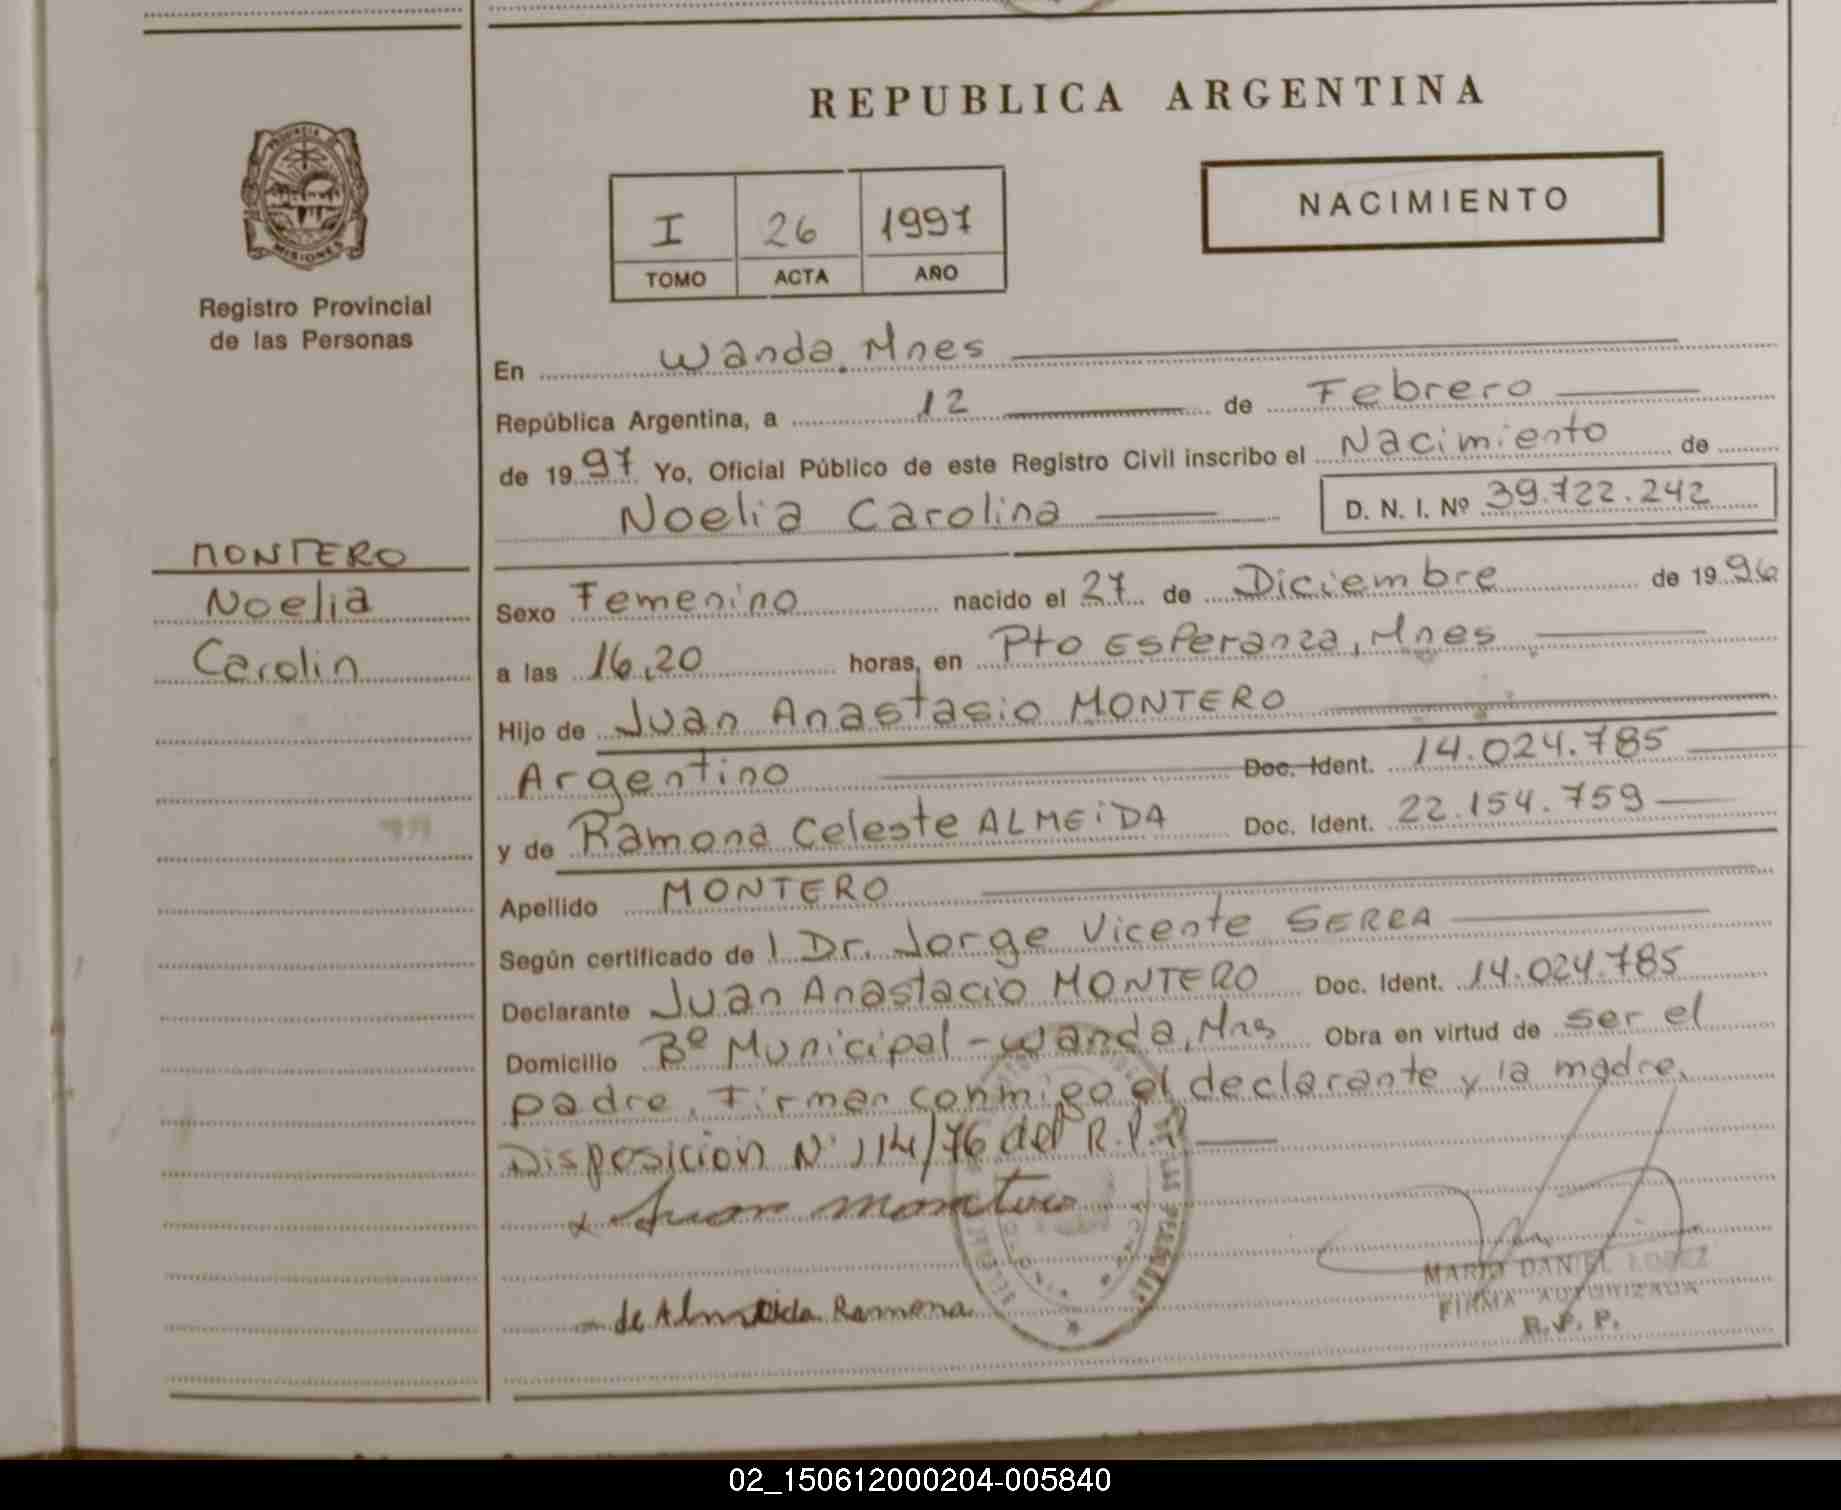 REPUBLICA ARGENTINA
PROVINCIA DE
MISIONES
Registro Provincial
de las Personas
NACIMIENTO
I 26 1997
TOMO ACTA AÑO
En Wanda, Mnes
República Argentina, a 12 de Febrero
de 1997 Yo, Oficial Público de este Registro Civil inscribo el Nacimiento de
Noelia Carolina D. N. I. Nº 39.722.242
MONTERO
Noelia
Carolin
Sexo Femenino nacido el 27 de Diciembre de 1996
a las 16,20 horas, en Pto Esperanza, Mnes
Hijo de Juan Anastasio MONTERO
Argentino Doc. Ident. 14.024.785
y de Ramona Celeste ALMEiDA Doc. Ident. 22.154.759
Apellido MONTERO
Según certificado de l Dr. Jorge Vicente SERRA
Declarante Juan Anastacio MONTERO Doc. Ident. 14.024.785
Domicilio Bº Municipal - Wanda, Mns Obra en virtud de ser el
padre. Firman conmigo el declarante y la madre.
Disposicion Nº 114/76 del R.P.P
Juan Montero
de Almeida Ramona
MARIO DANIEL LOPEZ
FIRMA AUTORIZADA
R. P. P.
02_150612000204-005840